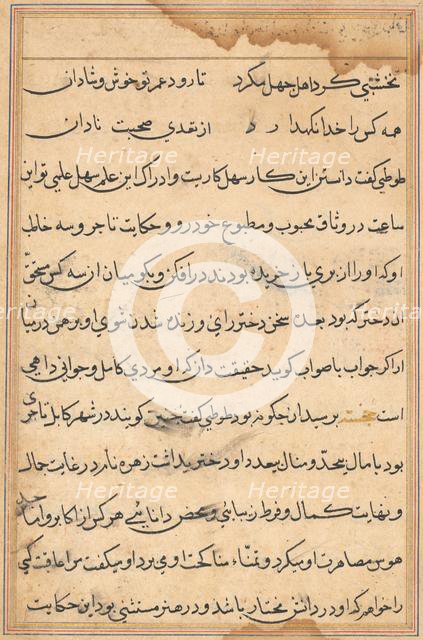 نخشبی گرد اهل جهل مگرد تا رود عمر تو خوش و شادان
همه کس را خدا نگهدارد از تعدی صحبت نادان
طوطی گفت دانستن این کار سهل کاریست و ادراک این علم سهل علمی تو این
ساعت در وثاق محبوب و مطبوع خود رو و حکایت تاجر و سه خاطب
او که او را از پری باز خریده بودند در افکن و بگو میان ان سه کس مستحق
ان دختر که بود بعده سخن دختر رای و زنده شدن شوی او برهمن در میان
ار اگر جواب با صواب گوید حقیقت دان که او مردی کامل و جوانی داهی
است خجسته پرسید ان چگونه بود طوطی گفت چنین گویند در شهر کابل تاجری
بود با مال بیحد و منال بیعدد او دختری داشت زهره نام در غایت جمال
و نهایت کمال و فرط زیبائی و محض دانائی هر کس از اکابر و اماجد
هوس مصاهرت او میکرد و تمناء مناکحت او می برد او میگفت مرا عاقبت کسی
را خواهم که او در دانش مختار باشد و در هنر مستثنی بود این حکایت
Heritage
Heritage
Heritage
Heritage
Heritage
Heritage
C